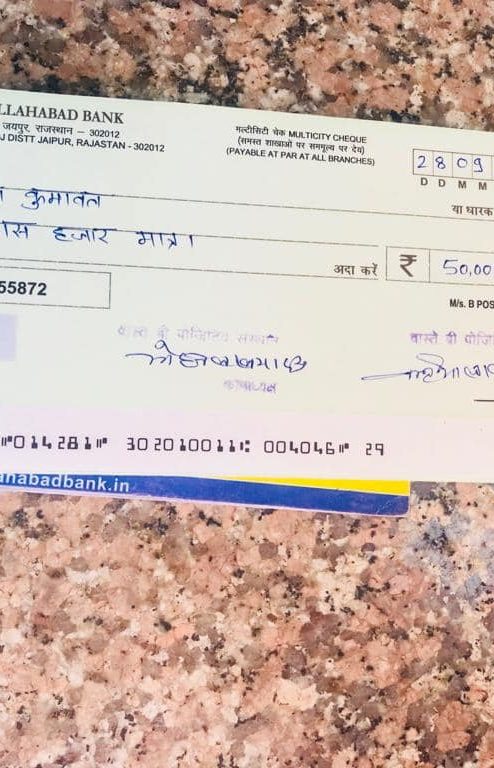 LLAHABAD BANK
जयपुर, राजस्थान – 302012
J DISTT JAIPUR, RAJASTAN - 302012
मल्टीसिटी चेक MULTICITY CHEQUE
(समस्त शाखाओं पर सममूल्य पर देय)
(PAYABLE AT PAR AT ALL BRANCHES)
2 8 0 9
D D M M
कुमावत
या धारक
हजार मात्र।
अदा करें
₹ 50,00
55872
M/s. B POS
वास्ते बी पोजि
⑈014281⑈ 302010011⑆ 004046⑈ 29
ahabadbank.in